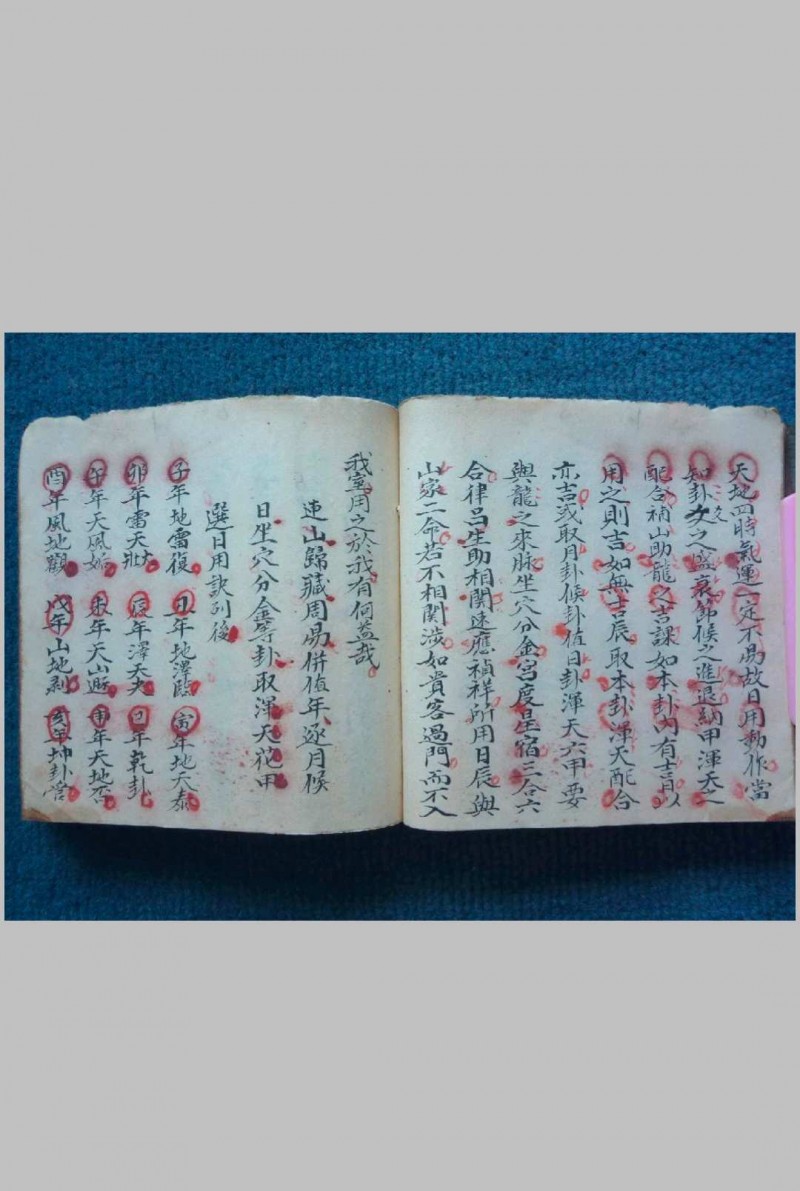 天地四時氣運一定不易故日用動作當
知卦爻之盛衰節候之進退納甲渾天之
配合補山助龍之吉課如本卦內有吉日以
用之則吉如無吉辰取本卦渾天配合
亦吉或取月卦候卦值日卦渾天六甲要
與龍之來脉坐穴分金宮度星宿三合六
合律呂生助相関速應禎祥所用日辰與
山家二命若不相関涉如貴客過門而不入
我室用之於我有何益哉
連山歸藏周易併值年逐月候
日坐穴分金等卦取渾天花甲
選日用訣列後
子年地雷復 丑年地澤臨 寅年地天泰
卯年雷天壯 辰年澤天夬 巳年乾卦
午年天風姤 未年天山遯 申年天地否
酉年風地觀 戌年山地剥 亥年坤卦